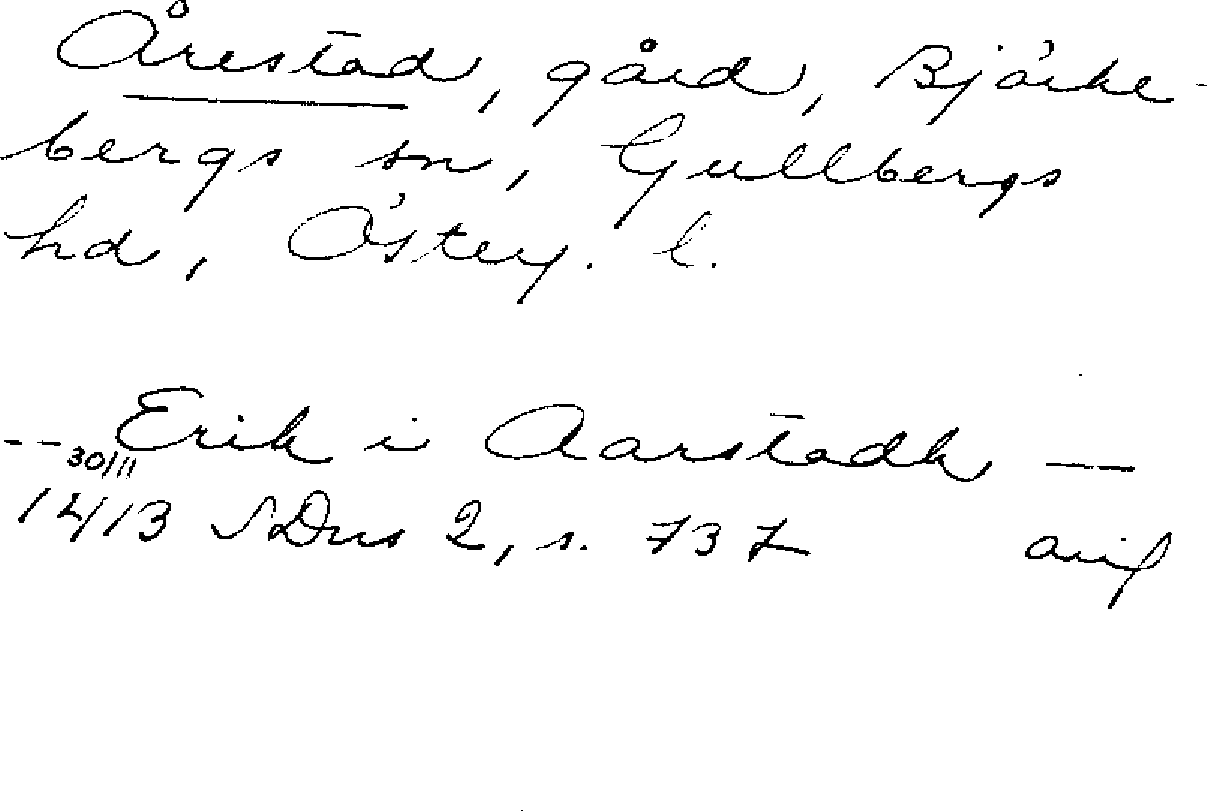 Årestad, gård, Björke-
bergs sn, Gullbergs
hd, Österg. l.
-- Erik i Aarstadh —
30/11
1413 SDns 2, s. 737 avs